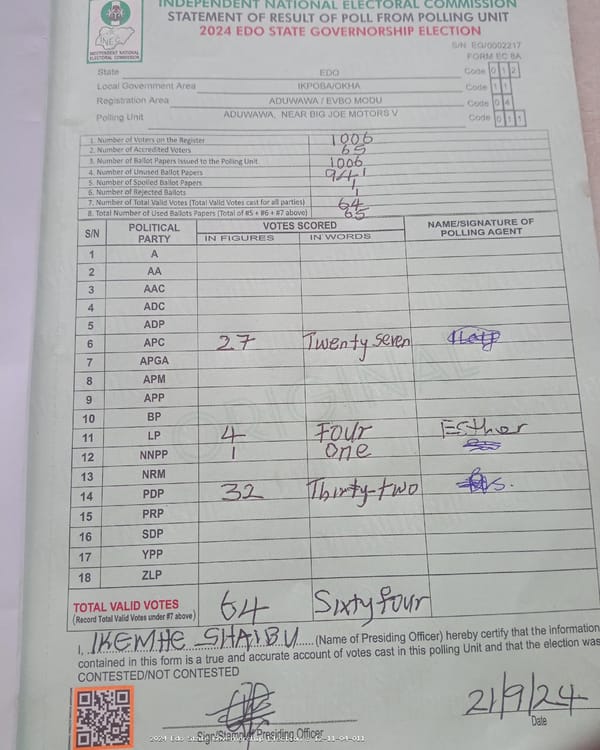 INDEPENDENT NATIONAL ELECTORAL COMMISSION
STATEMENT OF RESULT OF POLL FROM POLLING UNIT
2024 EDO STATE GOVERNORSHIP ELECTION
INEC
INDEPENDENT NATIONAL ELECTORAL COMMISSION
S/N EG/0002217
FORM EC 8A
State EDO Code 0 1 2
Local Government Area IKPOBA/OKHA Code 1 1
Registration Area ADUWAWA / EVBO MODU Code 0 4
Polling Unit ADUWAWA, NEAR BIG JOE MOTORS V Code 0 1 1
1. Number of Voters on the Register 1006
2. Number of Accredited Voters 65
3. Number of Ballot Papers Issued to the Polling Unit 1006
4. Number of Unused Ballot Papers 941
5. Number of Spoiled Ballot Papers 1
6. Number of Rejected Ballots 1
7. Number of Total Valid Votes (Total Valid Votes cast for all parties) 64
8. Total Number of Used Ballots Papers (Total of #5 + #6 + #7 above) 65
S/N POLITICAL PARTY VOTES SCORED NAME/SIGNATURE OF POLLING AGENT
IN FIGURES IN WORDS
1 A
2 AA
3 AAC
4 ADC
5 ADP
6 APC 27 Twenty seven
7 APGA
8 APM
9 APP
10 BP
11 LP 4 FOUR Esther
12 NNPP 1 One
13 NRM
14 PDP 32 Thirty-two
15 PRP
16 SDP
17 YPP
18 ZLP
TOTAL VALID VOTES 64 Sixty four
(Record Total Valid Votes under #7 above)
ORIGINAL
I, IKEMHE SHAIBU (Name of Presiding Officer) hereby certify that the information
contained in this form is a true and accurate account of votes cast in this polling Unit and that the election was
CONTESTED/NOT CONTESTED
21/9/24
Sign/Stamp of Presiding Officer Date